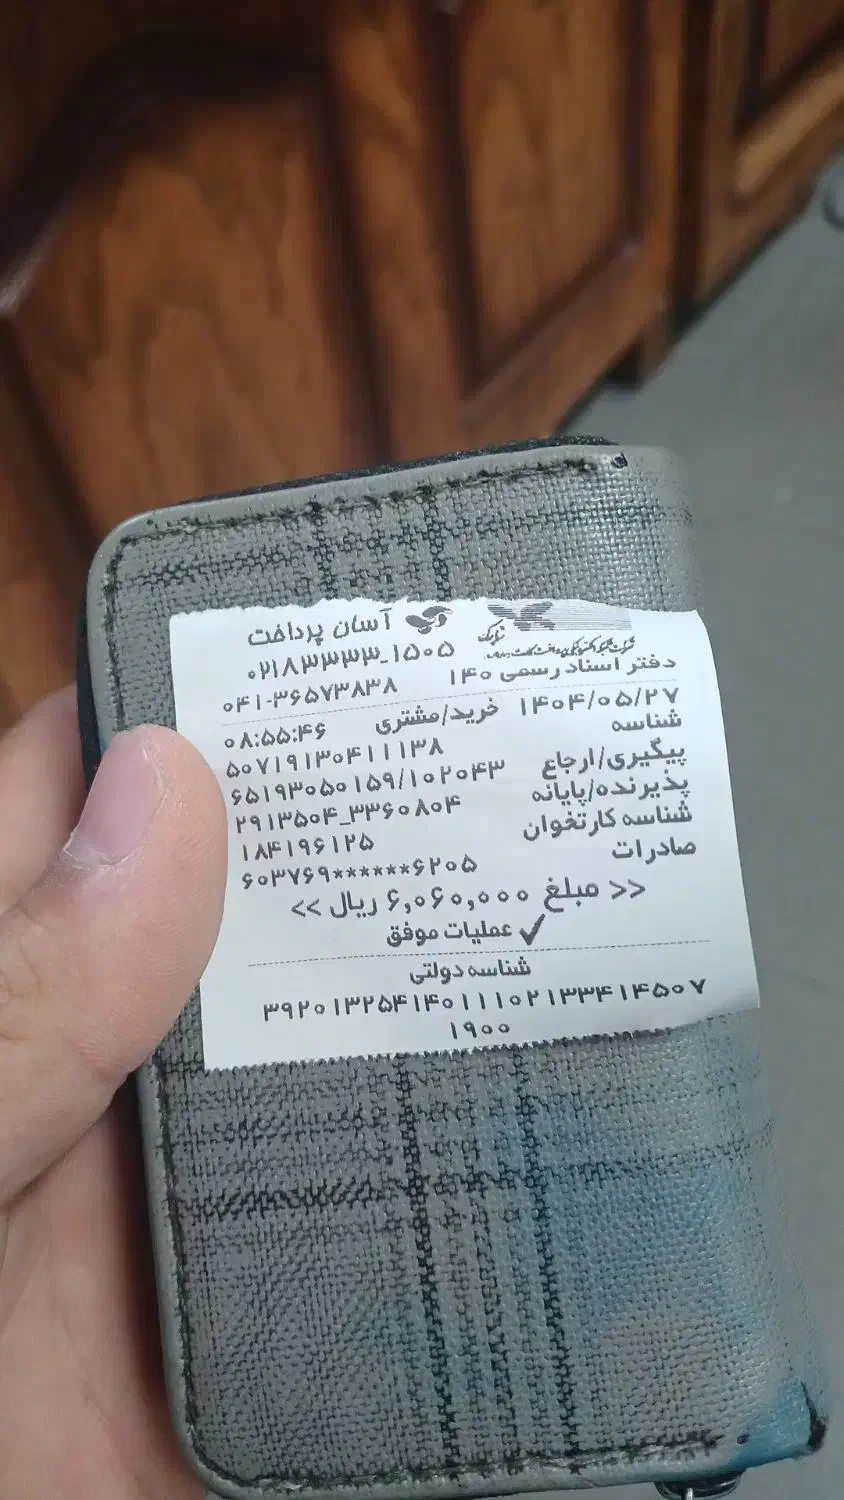 آسان پرداخت
۰۲۱۸۳۳۳۳_۱۵۰۵
دفتر اسناد رسمی ۱۴۰
۰۴۱-۳۶۵۷۳۸۳۸
۱۴۰۴/۰۵/۲۷ خرید/مشتری ۰۸:۵۵:۴۶
شناسه ۵۰۷۱۹۱۳۰۴۱۱۱۳۸
پیگیری/ارجاع ۶۵۱۹۳۰۵۰۱۵۹/۱۰۲۰۴۳
پذیرنده/پایانه ۲۹۱۳۵۰۴_۳۳۶۰۸۰۴
شناسه کارتخوان ۱۸۴۱۹۶۱۲۵
صادرات ۶۰۳۷۶۹******۶۲۰۵
<< مبلغ ۶,۰۶۰,۰۰۰ ریال >>
✓ عملیات موفق
شناسه دولتی
۳۹۲۰۱۳۲۵۴۱۴۰۱۱۱۰۲۱۳۳۴۱۴۵۰۷
۱۹۰۰